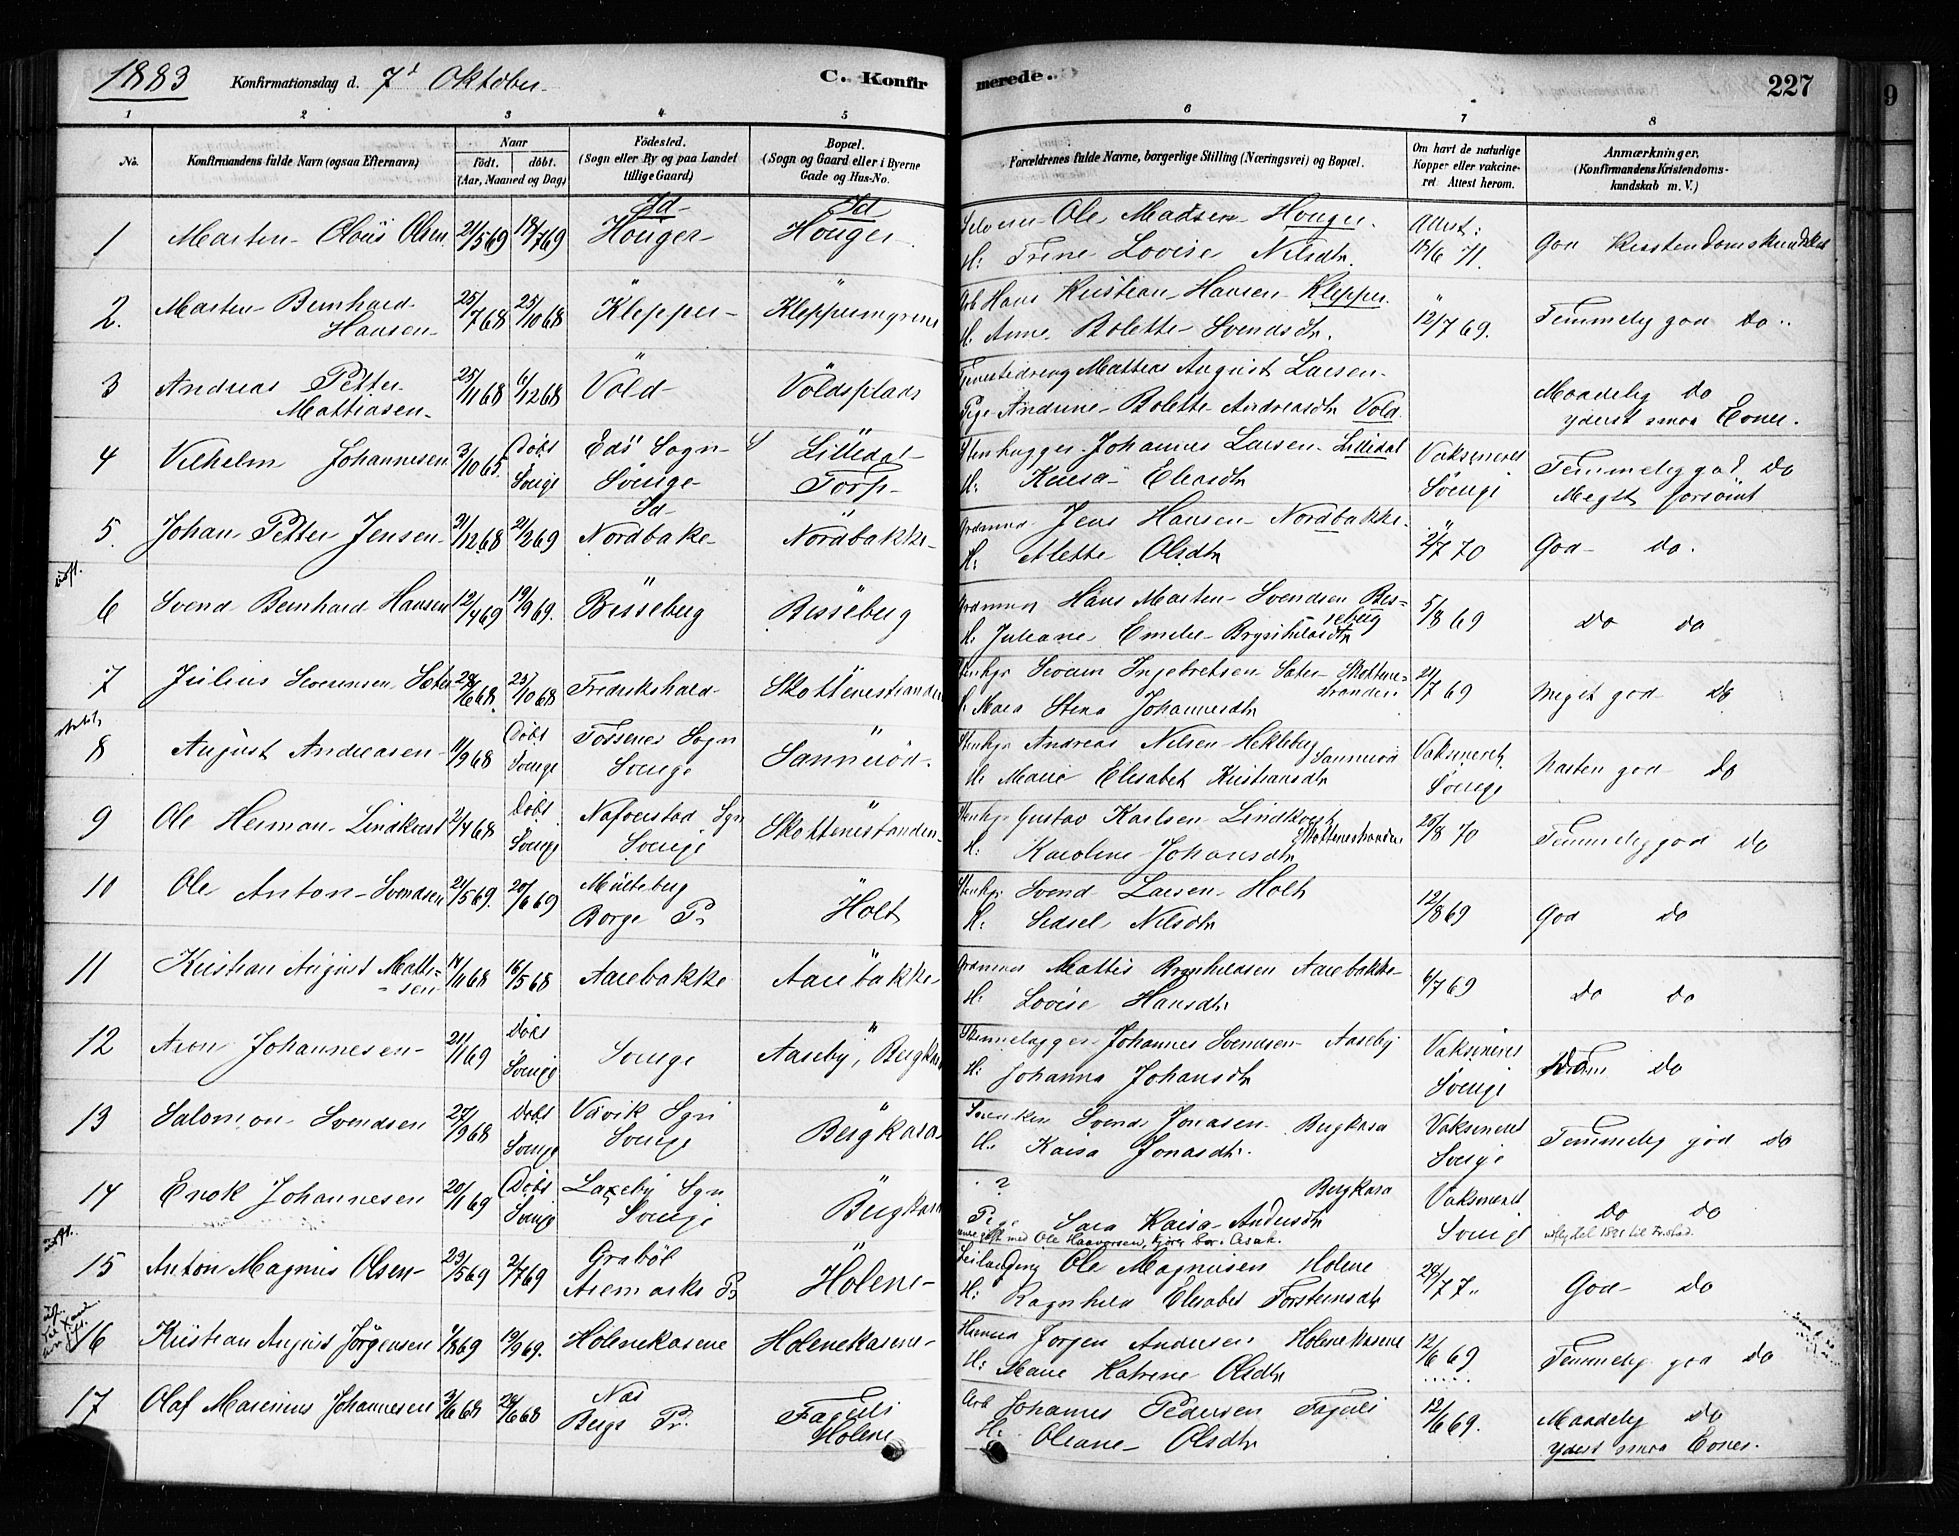 1883 Konfirmationsdag d. 7d Oktober. C. Konfirmerede. 227
1 2 3 4 5 6 7 8
No. Konfirmandens fulde Navn (ogsaa Efternavn) Naar født. døbt. (Aar, Maaned og Dag) Födested. (Sogn eller By og paa Landet tillige Gaard) Bopæl. (Sogn og Gaard eller i Byerne Gade og Hus-No. Forældrenes fulde Navne, borgerlige Stilling (Næringsvei) og Bopæl. Om havt de naturlige Kopper eller vakcineret Attest herom. Anmærkninger. (Konfirmandens Kristendomskundskab m. V.)
Id Id
1 Marten Olaus Olsen 21/5 69 18/7 69 Houger Houger Selveier Ole Madsen Houger. Attest: 18/6 71. God Kristendomskundskab
H: Trine Lovise Nilsdtr.
2. Marten Bernhard Hansen 25/7 68 25/10 68 " Klepper " Kleppermyrene Arb Hans Kristian Hansen Klepper. " 12/7 69. Temmelig god do.
H. Anne Bolette Svendsdtr.
3 Andreas Petter Mattiasen 25/11 68 6/12 68 " Vold " Voldsplads Tjenestedreng Mattias August Larsen Maadelig do
Pige Andrine Bolette Andreasdtr Vold. yderst smaa Evner.
4 Vilhelm Johannesen 3/10 65. Döbt Sverige Eds Sogn Sverige " Lilledal Torp Stenhugger Johannes Larsen Lilledal Vaksineret Sverige Temmelig god do
H: Kaisa Eliasdtr Meget forsömt
5. Johan Petter Jensen 31/12 68 21/2 69 Id Nordbake " Nordbakke Grdmand Jens Hansen Nordbakke. " 2/7 70 God do.
H. Mette Olsdtr
6 Svend Bernhard Hansen 12/4 69 19/9 69. " Bisseberg " Bisseberg Grdmand Hans Marten Svendsen Bisseberg 5/8 69 do do
H. Juliane Emilie Brynhildsdtr
7 Julius Severinsen Sæter 28/6 68. 25/10 68 Fredrikshald Skottenestranden Stenhgr Severin Ingebretsen Sæter Skottenestranden 21/7 69 Meget god do
H. Mara Stena Johannesdtr
8 August Andreasen 11/9 68 Döbt Sverige Tossenes Sogn Sverige " Sannerød. Stenhgr Andreas Nilsen Hekleberg Sannerød Vaksineret Sverige Næsten god do
H. Marie Elisabet Kristiansdtr
9 Ole Herman Lindkvist 2/4 68 Döbt Sverige Nafverstad Sgn Sverige " Skottenestranden Stenhgr Gustav Karlsen Lindkvist Skottenestranden 25/8 70 Temmelig god do
H. Karoline Johansdtr
10 Ole Anton Svendsen 21/5 69. 20/6 69 Multeberg Borge Pr " Holt Stenhgr Svend Larsen Holt 12/8 69 God do
H. Sidsel Nilsdtr
11 Kristian August Mattisen 14/11 68 16/5 68 Aarebakke " Aarebakke Grdmand Mattis Brynhildsen Aarebakke 6/7 69 do do
H. Lovise Hansdtr
12 Aron Johannesen 21/1 69 Döbt Sverige Sverige " Aaseby, Bergkasa Johannes Svendsen Aaseby Vaksineret Sverige do
H: Johanna Johansdtr
13 Salomon Svendsen 27/9 68 Döbt Sverige Sgn Sverige " Bergkasa Svend Jonasen Bergkasa Vaksineret Sverige Temmelig god do
H. Kaisa Jonasdtr.
14 Enok Johannesen 20/1 69 Döbt Sverige Laxeby Sgn Sverige " Bergkasa ? Bergkasa Vaksineret Sverige do do
Pige Sara Kaisa Andersdtr
gift med Ole Haavorsen,
15 Anton Magnus Olsen 23/5 69 2/7 69 Graböl Aremarks Pr " Holene Leilending Ole Magnusen Holene 24/7 77. God do
H: Ragnhild Elisabet Torstensdtr
16 Kristian August Jörgensen 1/8 69 19/9 69. Holenekasene Holenekasene Husmd Jorgen Andersen Holenekasene 12/6 69 Temmelig god do
H: Marie Katrine Olsdtr
17 Olaf Marinius Johannesen 3/6 68 28/6 68 Næs Bergs Pr. Fagerli Holene Arb Johannes Pedersen Fagerli 12/6 69. Maadelig do
H. Oliane Olsdtr yderst smaa Evner.